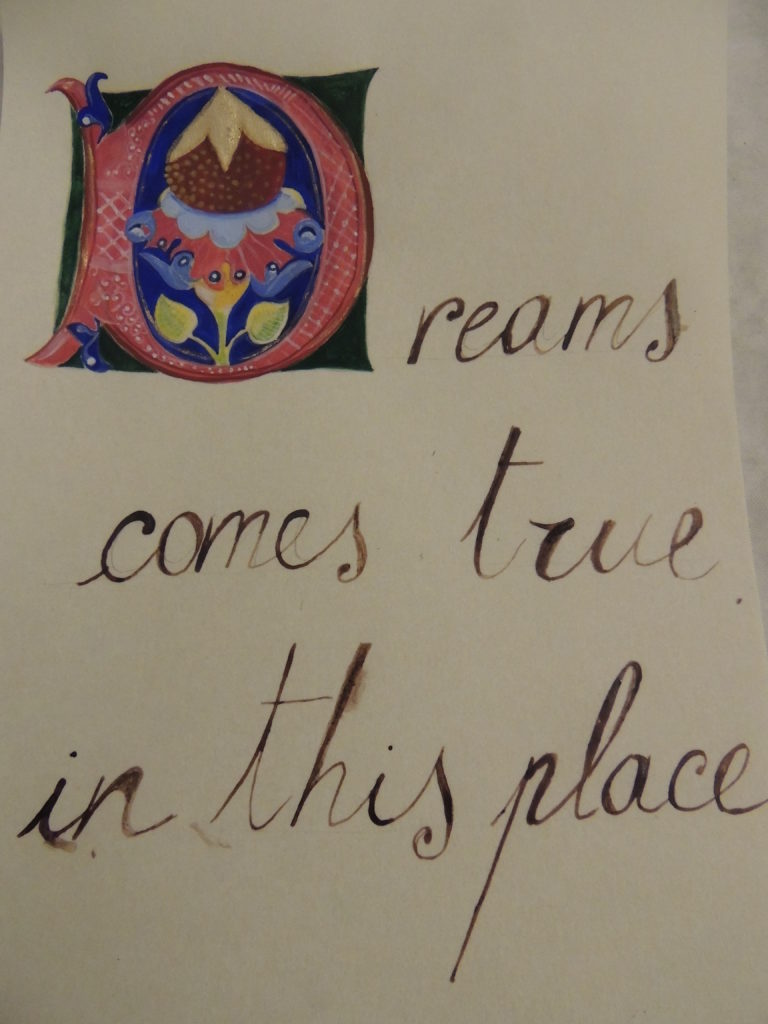 Dreams
comes true
in this place